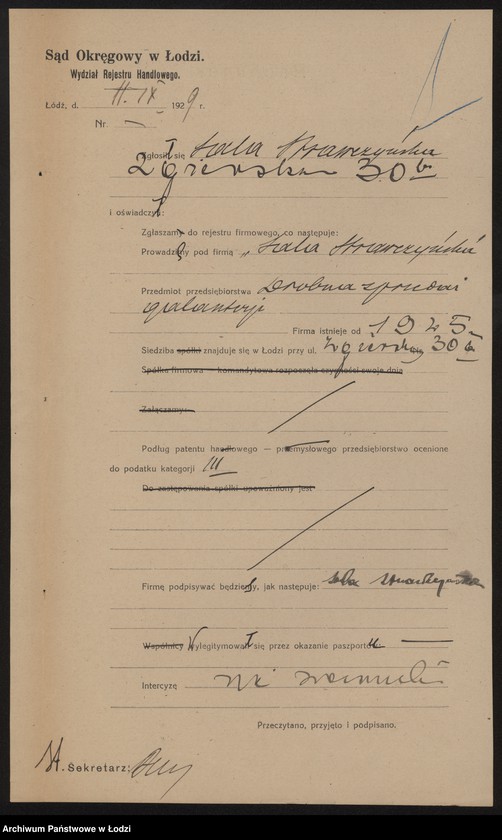 Sąd Okręgowy w Łodzi.
Wydział Rejestru Handlowego.
Łódź, d. 11. IX 1929 r.
Nr. —
Zgłosił się Hala Strawczyńska
Zgierska 30 b
i oświadczył:
Zgłaszam do rejestru firmowego, co następuje:
Prowadzę pod firmą „Hala Strawczyńska
Przedmiot przedsiębiorstwa Drobna sprzedaż
galanterji
Firma istnieje od 1925
Siedziba spółki znajduje się w Łodzi przy ul. Zgierskiej 30 b
Spółka firmowa — komandytowa rozpoczęła czynności swoje dnia
Załączamy:
Podług patentu handlowego — przemysłowego przedsiębiorstwo ocenione
do podatku kategorji III
Do zastępowania spółki upoważniony jest
Firmę podpisywać będziemy, jak następuje: Strawczyńska
Wspólnicy wylegitymowali się przez okazanie paszportu
Intercyzę nie zawarłem
Przeczytano, przyjęto i podpisano.
St. Sekretarz:
Archiwum Państwowe w Łodzi